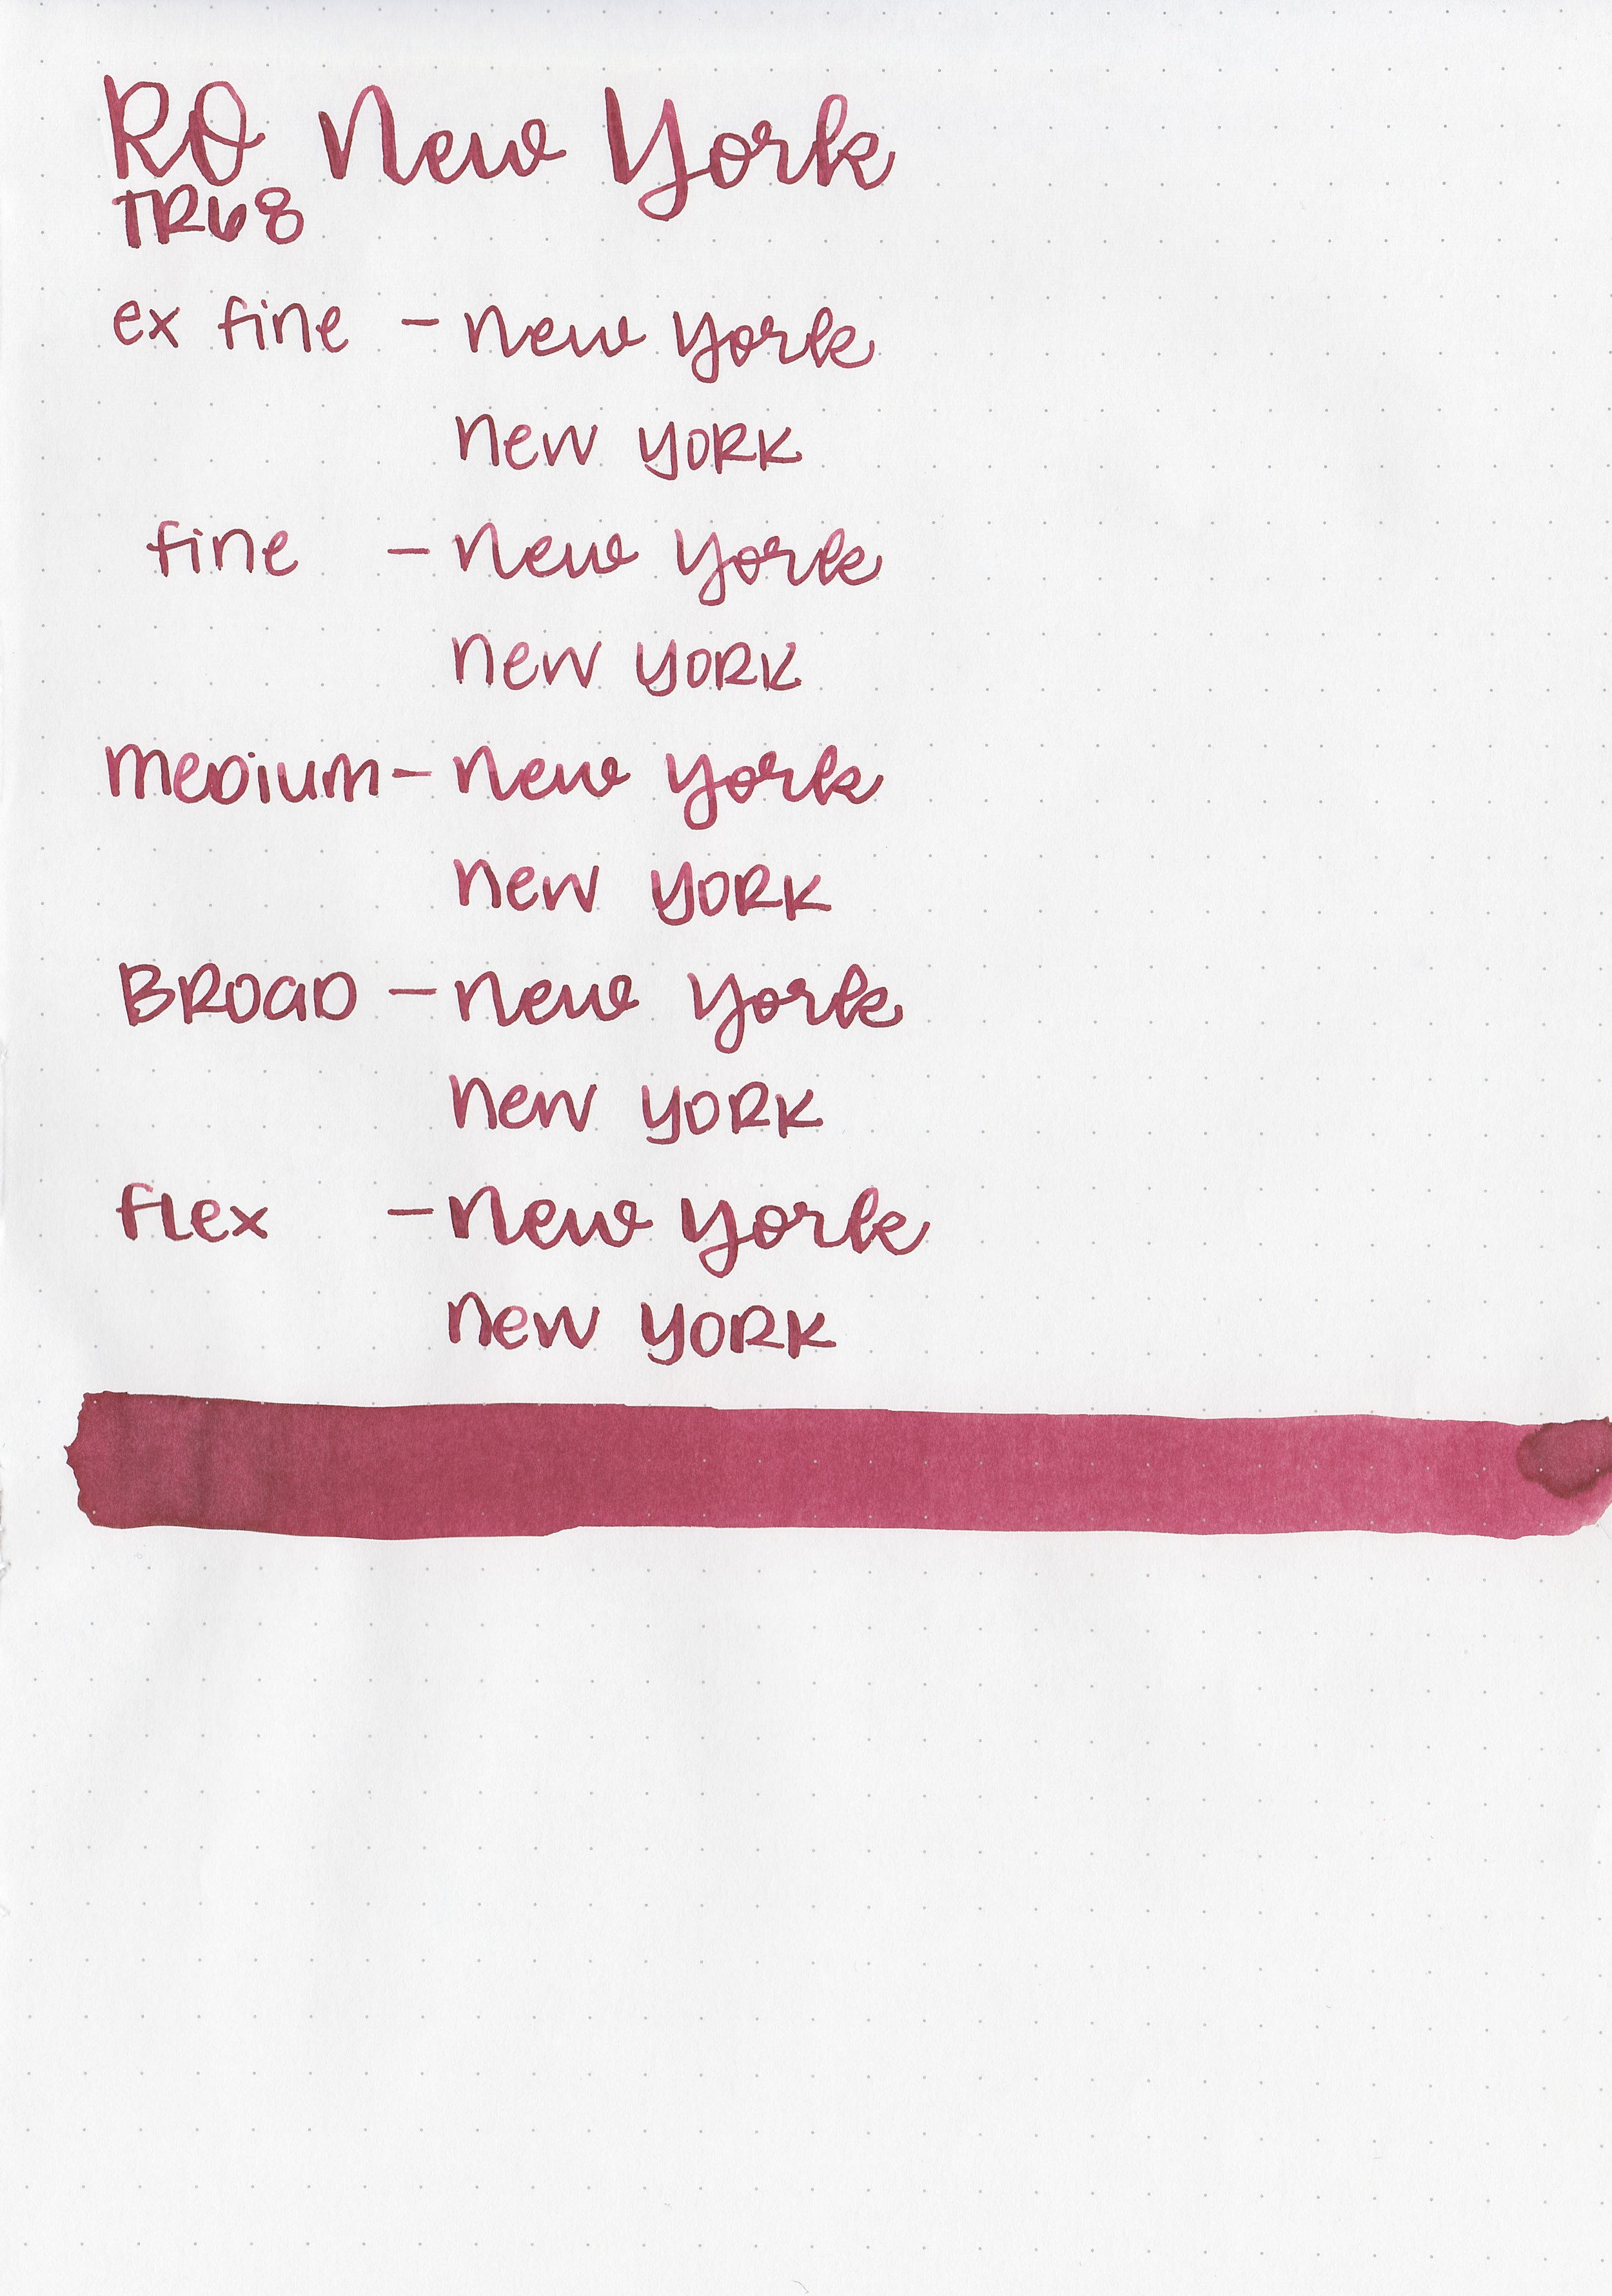 RO New York
TR68
ex fine - new york
new york
fine - new york
new york
medium - new york
new york
Broad - new york
new york
flex - new york
new york